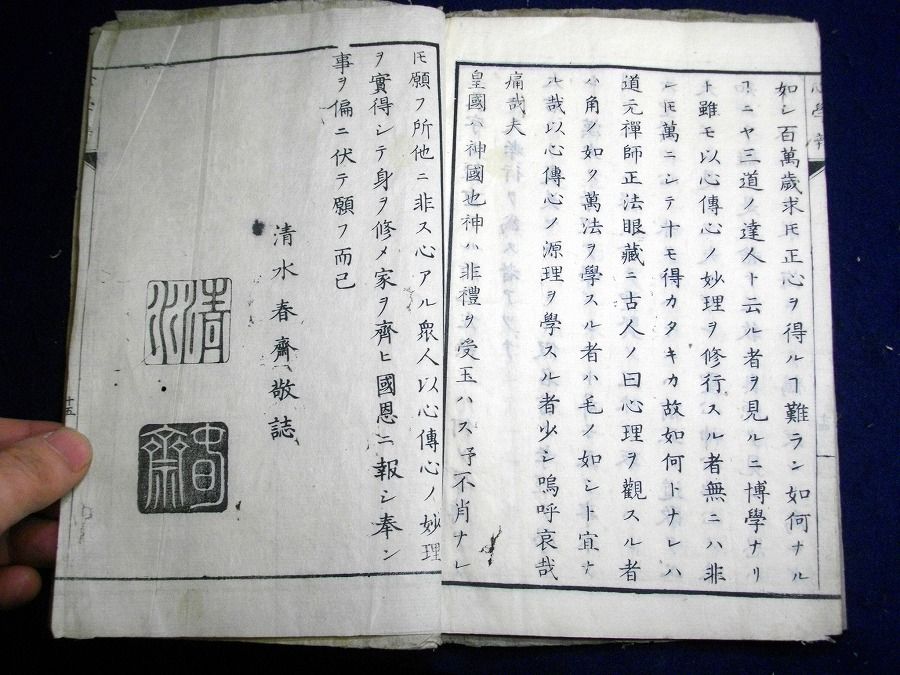 如シ百萬歳求𪜈正心ヲ得ルヿ難ラン如何ナル
ヿニヤ三道ノ達人ト云ル者ヲ見ルニ博學ナリ
ト雖モ以心傳心ノ妙理ヲ修行スル者無ニハ非
レ𪜈萬ニシテ十モ得カタキカ故如何トナレハ
道元禪師正法眼藏ニ古人ノ曰心理ヲ觀スル者
ハ角ノ如ク萬法ヲ學スル者ハ毛ノ如シト宜ナ
ル哉以心傳心ノ源理ヲ學スル者少シ嗚呼哀哉
痛哉夫
皇國ハ神國也神ハ非禮ヲ受玉ハス予不肖ナレ
𪜈願フ所他ニ非ス心アル衆人以心傳心ノ妙理
ヲ實得シテ身ヲ修メ家ヲ齊ヒ國恩ニ報シ奉ン
事ヲ偏ニ伏テ願フ而已
清水春齋敬誌
清水
春齋
十五